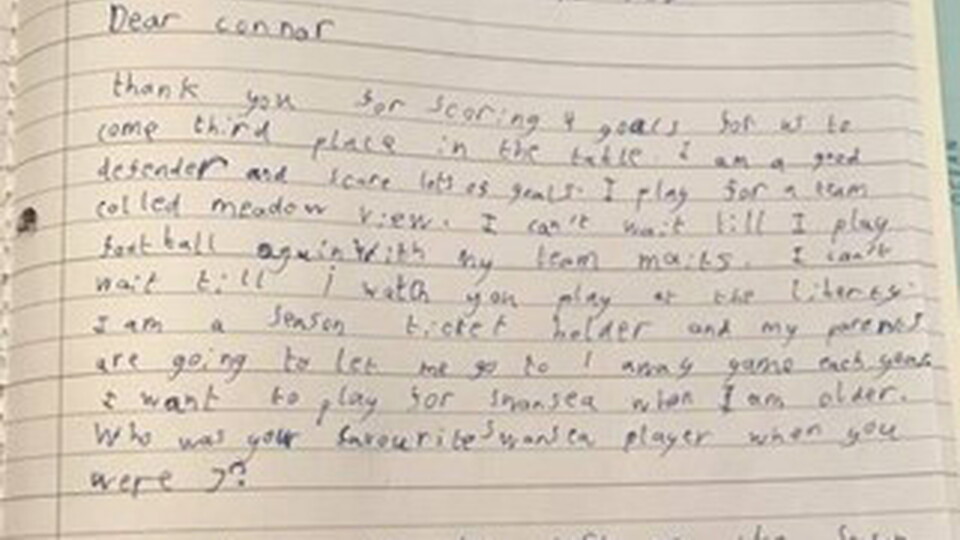 Dear connor
thank you for scoring 4 goals for us to
come third place in the table. I am a good
defender and scare lots of goals. I play for a team
called meadow view. I can't wait till I play
foot ball again with my team maits. I can't
wait till i watch you play at the liberty.
I am a season ticket holder and my parents
are going to let me go to 1 away game each year.
I want to play for swansea when I am older.
Who was your favourite swansea player when you
were 7?